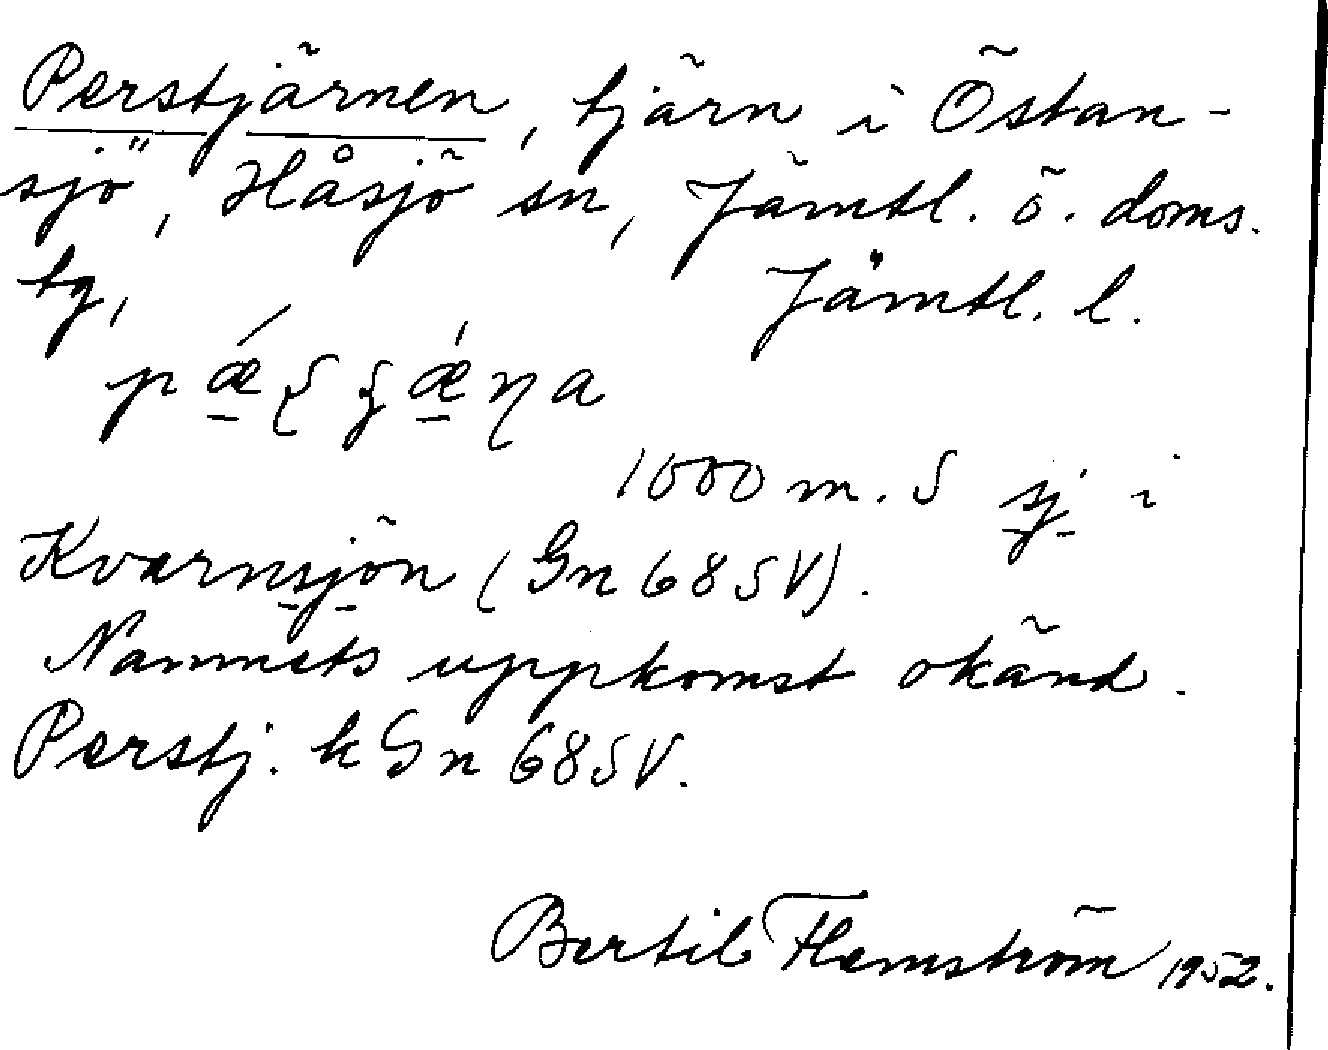 Perstjärnen, tjärn i Östan-
sjö, Håsjö sn, Jämtl. ö. doms.
tg, Jämtl. l.
1000 m. S sj i
Kvarnsjön (Gn 68 SV).
Namnets uppkomst okänd.
Perstj. k Gn 68 SV.
Bertil Flemström 1952.